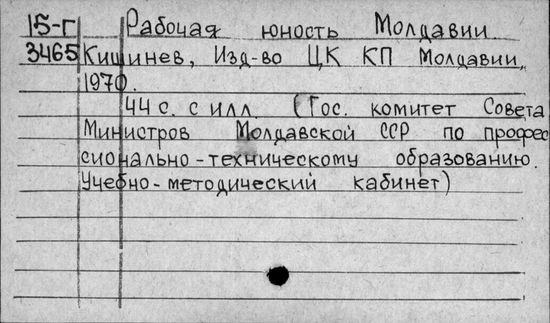 15-г Рабочая юность Молдавии.
3465 Кишинев, Изд-во ЦК КП Молдавии,
1970.
44 с. с илл. (Гос. комитет Совета
Министров Молдавской ССР по профес
сионально-техническому образованию.
Учебно-методический кабинет)